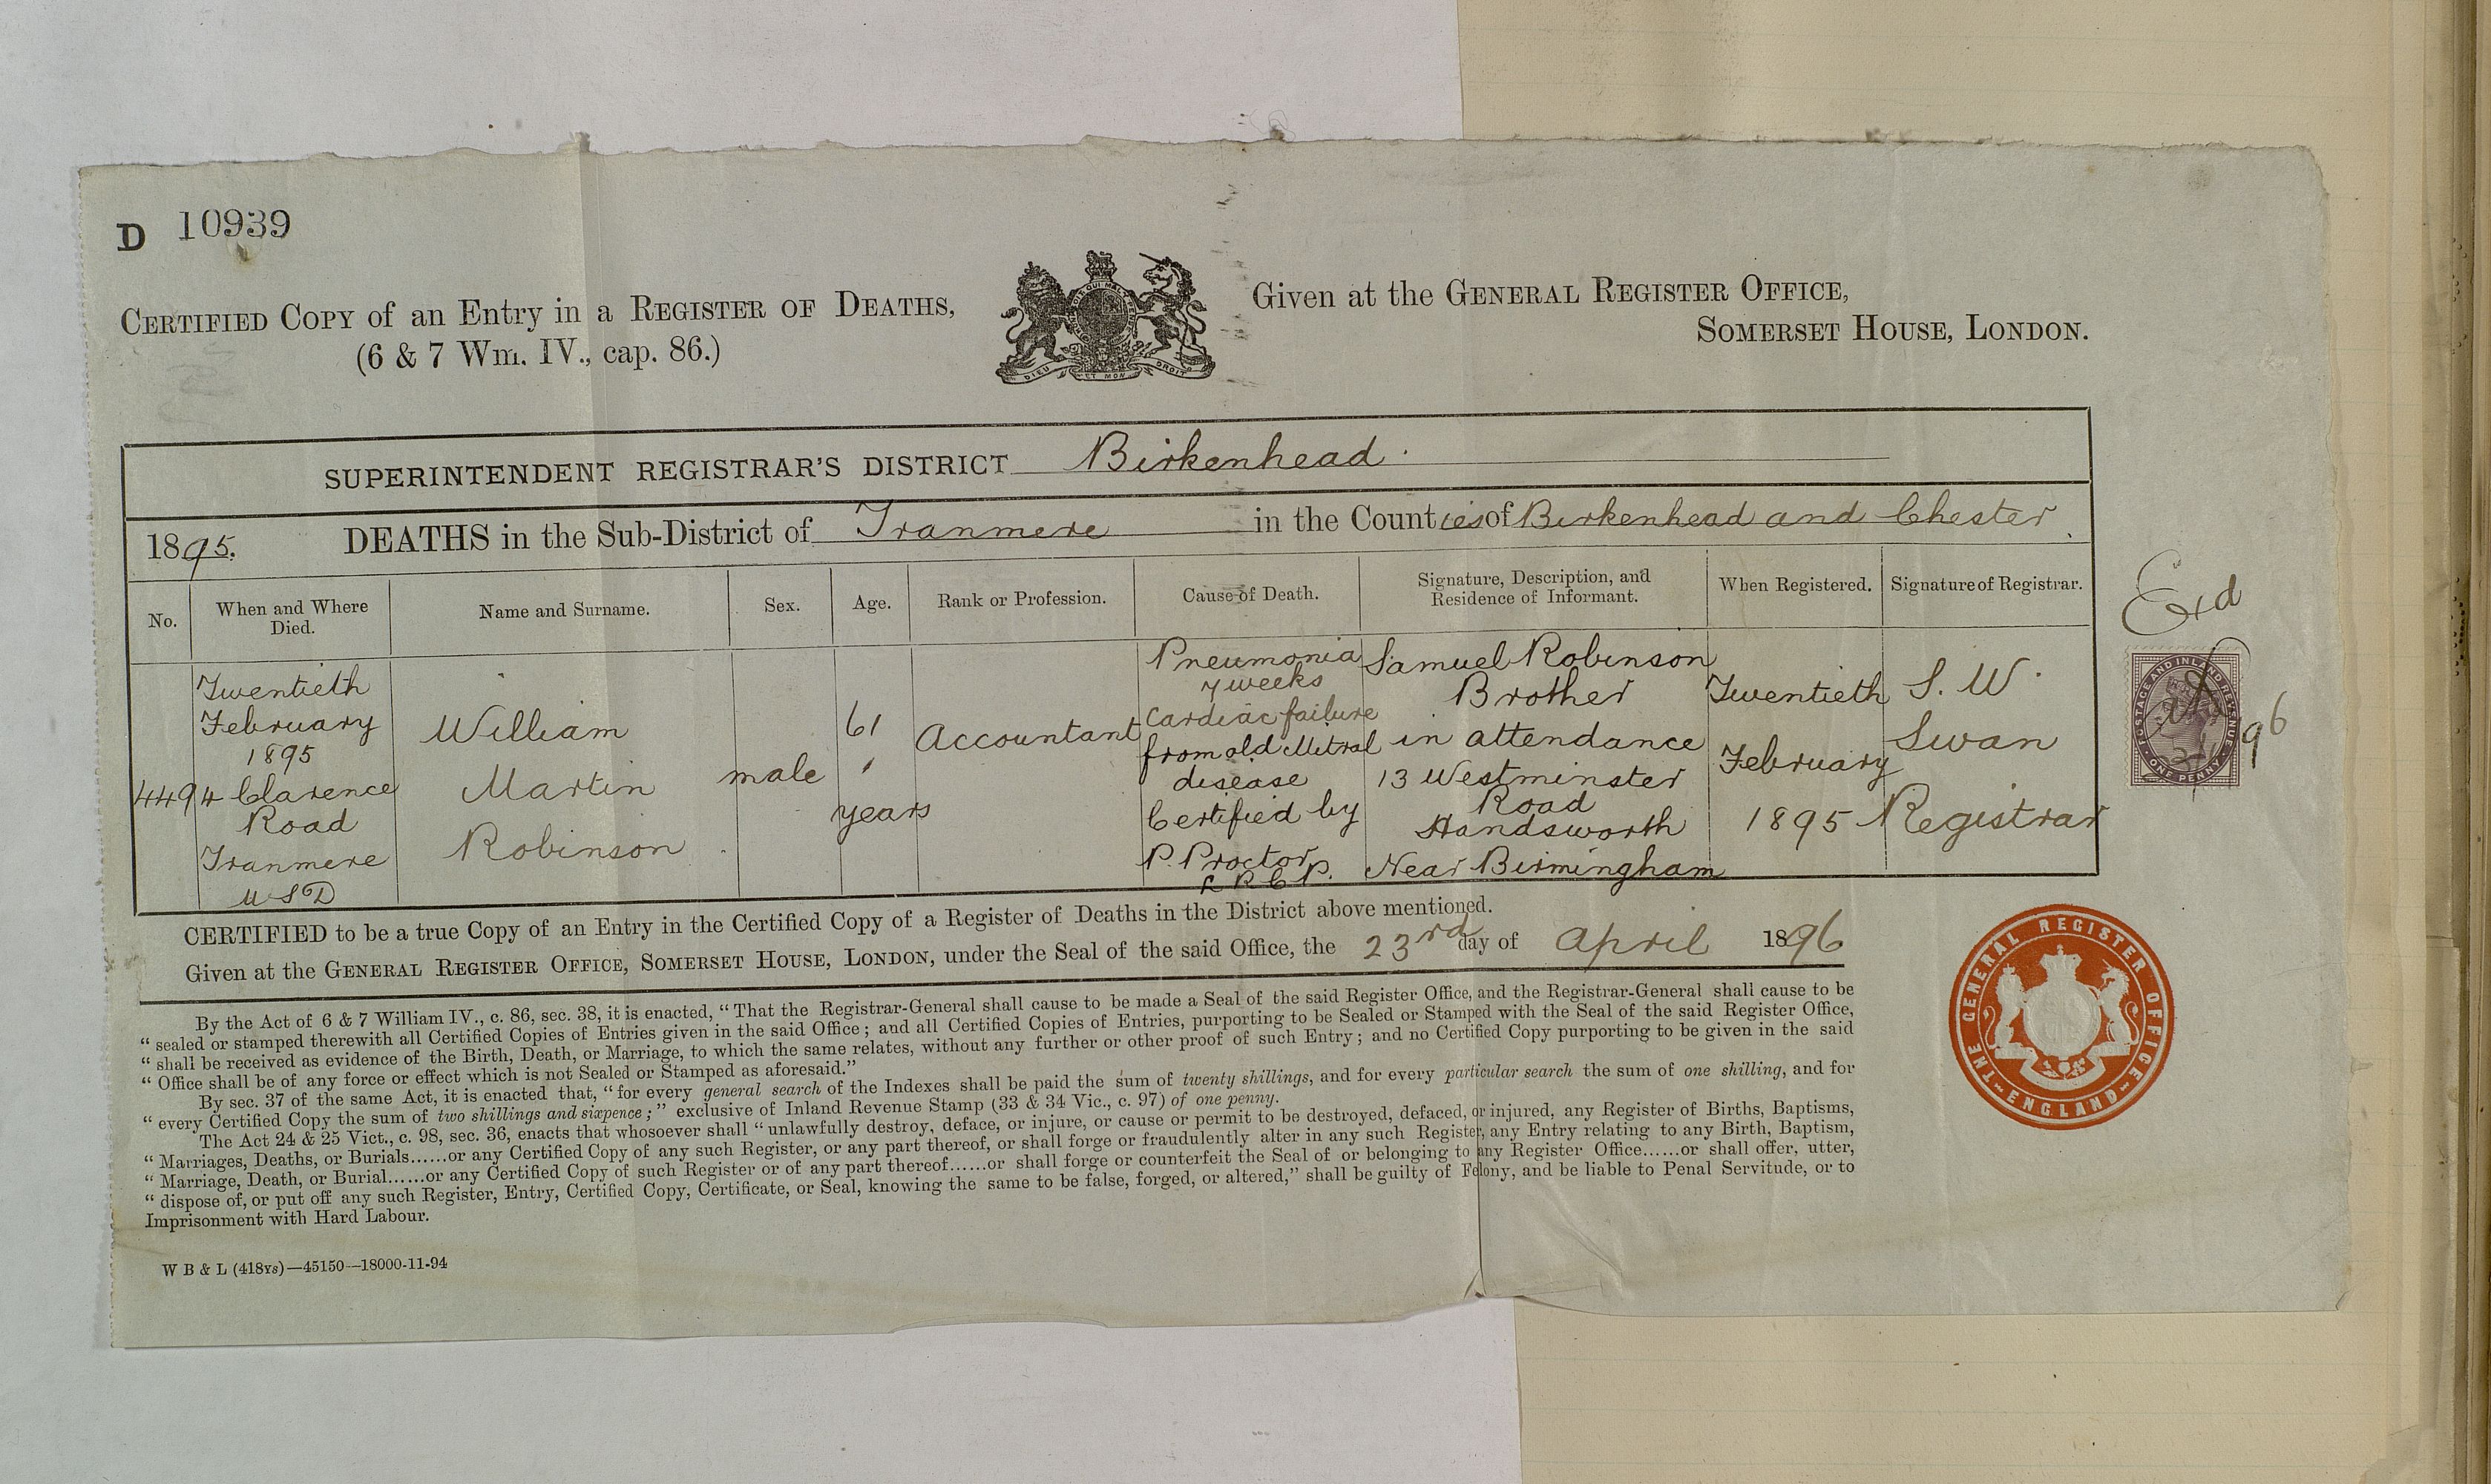 D 10939
CERTIFIED COPY of an Entry in a REGISTER OF DEATHS,
(6 & 7 Wm. IV., cap. 86.)
DIEU ET MON DROIT
Given at the GENERAL REGISTER OFFICE,
SOMERSET HOUSE, LONDON.
SUPERINTENDENT REGISTRAR'S DISTRICT Birkenhead.
1895. DEATHS in the Sub-District of Tranmere in the Counties of Birkenhead and Chester
No.
When and Where
Died.
Name and Surname.
Sex.
Age.
Rank or Profession.
Cause of Death.
Signature, Description, and
Residence of Informant.
When Registered.
Signature of Registrar.
449
Twentieth
February
1895
4 Clarence
Road
Tranmere
U S D
William
Martin
Robinson
male
61
years
Accountant
Pneumonia
7 weeks
Cardiac failure
from old Mitral
disease
Certified by
P. Proctor
L R C P.
Samuel Robinson
Brother
in attendance
13 Westminster
Road
Handsworth
Near Birmingham
Twentieth
February
1895
S. W.
Swan
Registrar
Exd
POSTAGE AND INLAND REVENUE
ONE PENNY
96
CERTIFIED to be a true Copy of an Entry in the Certified Copy of a Register of Deaths in the District above mentioned.
Given at the GENERAL REGISTER OFFICE, SOMERSET HOUSE, LONDON, under the Seal of the said Office, the 23rd day of April 1896
By the Act of 6 & 7 William IV., c. 86, sec. 38, it is enacted, "That the Registrar-General shall cause to be made a Seal of the said Register Office, and the Registrar-General shall cause to be
"sealed or stamped therewith all Certified Copies of Entries given in the said Office; and all Certified Copies of Entries, purporting to be Sealed or Stamped with the Seal of the said Register Office,
"shall be received as evidence of the Birth, Death, or Marriage, to which the same relates, without any further or other proof of such Entry; and no Certified Copy purporting to be given in the said
"Office shall be of any force or effect which is not Sealed or Stamped as aforesaid."
By sec. 37 of the same Act, it is enacted that, "for every general search of the Indexes shall be paid the sum of twenty shillings, and for every particular search the sum of one shilling, and for
"every Certified Copy the sum of two shillings and sixpence;" exclusive of Inland Revenue Stamp (33 & 34 Vic., c. 97) of one penny.
The Act 24 & 25 Vict., c. 98, sec. 36, enacts that whosoever shall "unlawfully destroy, deface, or injure, or cause or permit to be destroyed, defaced, or injured, any Register of Births, Baptisms,
"Marriages, Deaths, or Burials......or any Certified Copy of any such Register, or any part thereof, or shall forge or fraudulently alter in any such Register, any Entry relating to any Birth, Baptism,
"Marriage, Death, or Burial......or any Certified Copy of such Register or of any part thereof......or shall forge or counterfeit the Seal of or belonging to any Register Office......or shall offer, utter,
"dispose of, or put off any such Register, Entry, Certified Copy, Certificate, or Seal, knowing the same to be false, forged, or altered," shall be guilty of Felony, and be liable to Penal Servitude, or to
Imprisonment with Hard Labour.
W B & L (418ys)—45150—18000-11-94
THE GENERAL REGISTER OFFICE
ENGLAND